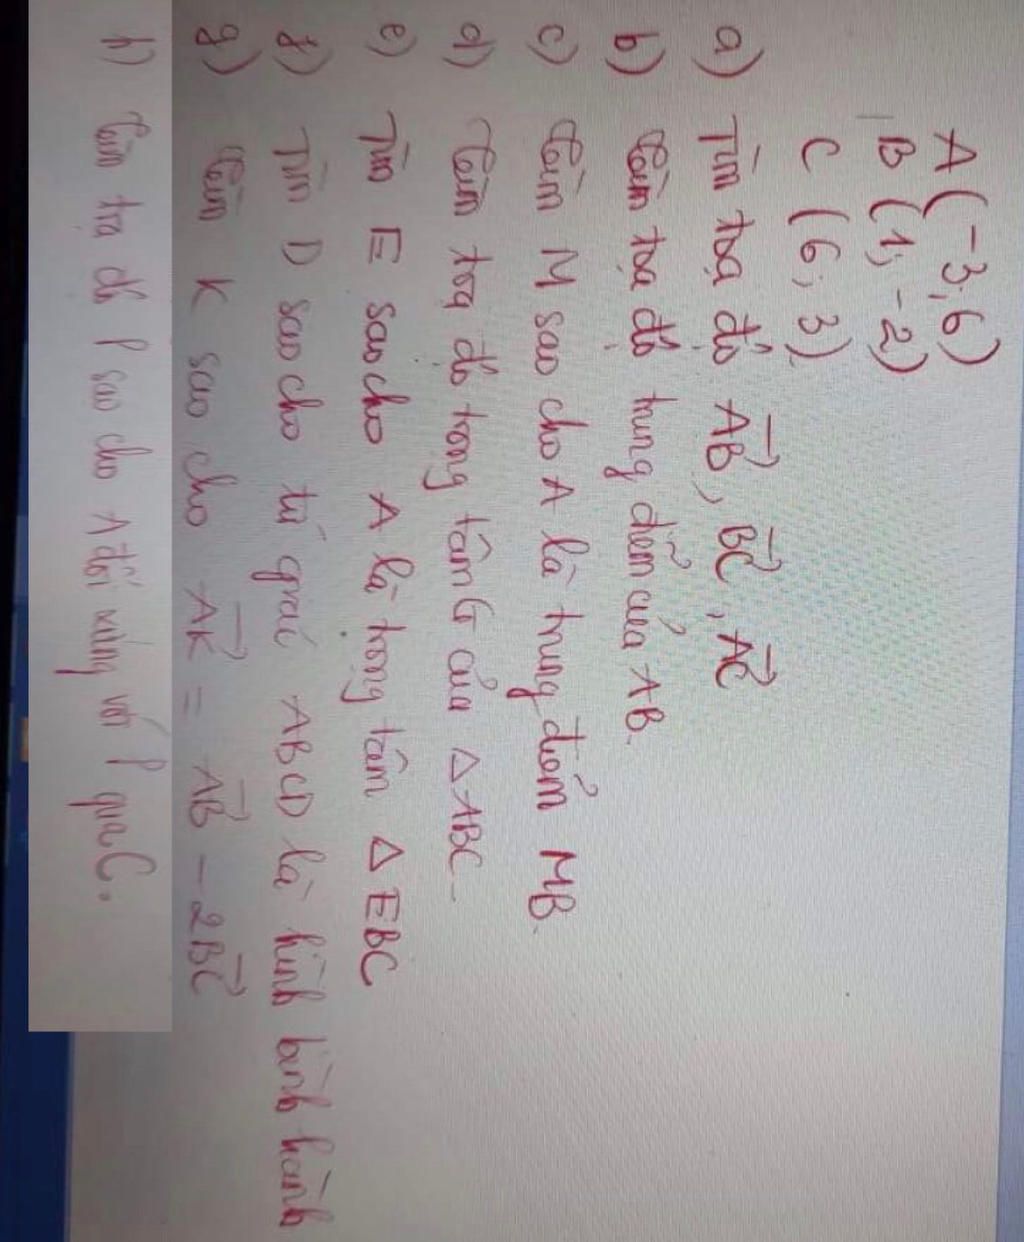 A(-3; 6)
B(1; -2)
C (6; 3)
a) Tìm toạ độ AB⃗, BC⃗, AC⃗
b) Tìm toạ độ trung điểm của AB.
c) Tìm M sao cho A là trung điểm MB.
d) Tìm toạ độ trọng tâm G của △ABC.
e) Tìm E sao cho A là trọng tâm △EBC
f) Tìm D sao cho tứ giác ABCD là hình bình hành
g) Tìm K sao cho AK⃗ = AB⃗ - 2BC⃗
h) Tìm toạ độ P sao cho A đối xứng với P qua C.